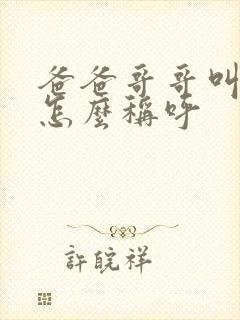 爸爸哥哥叫
怎麼稱呼
許皖祥